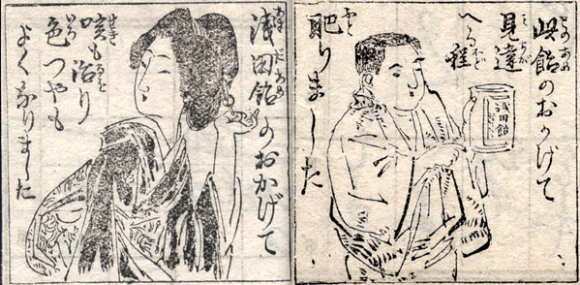 此飴のおかげて
見違
へる程
肥りました
浅田飴
浅田飴のおかげて
咳も治り
色つやも
よくなりました